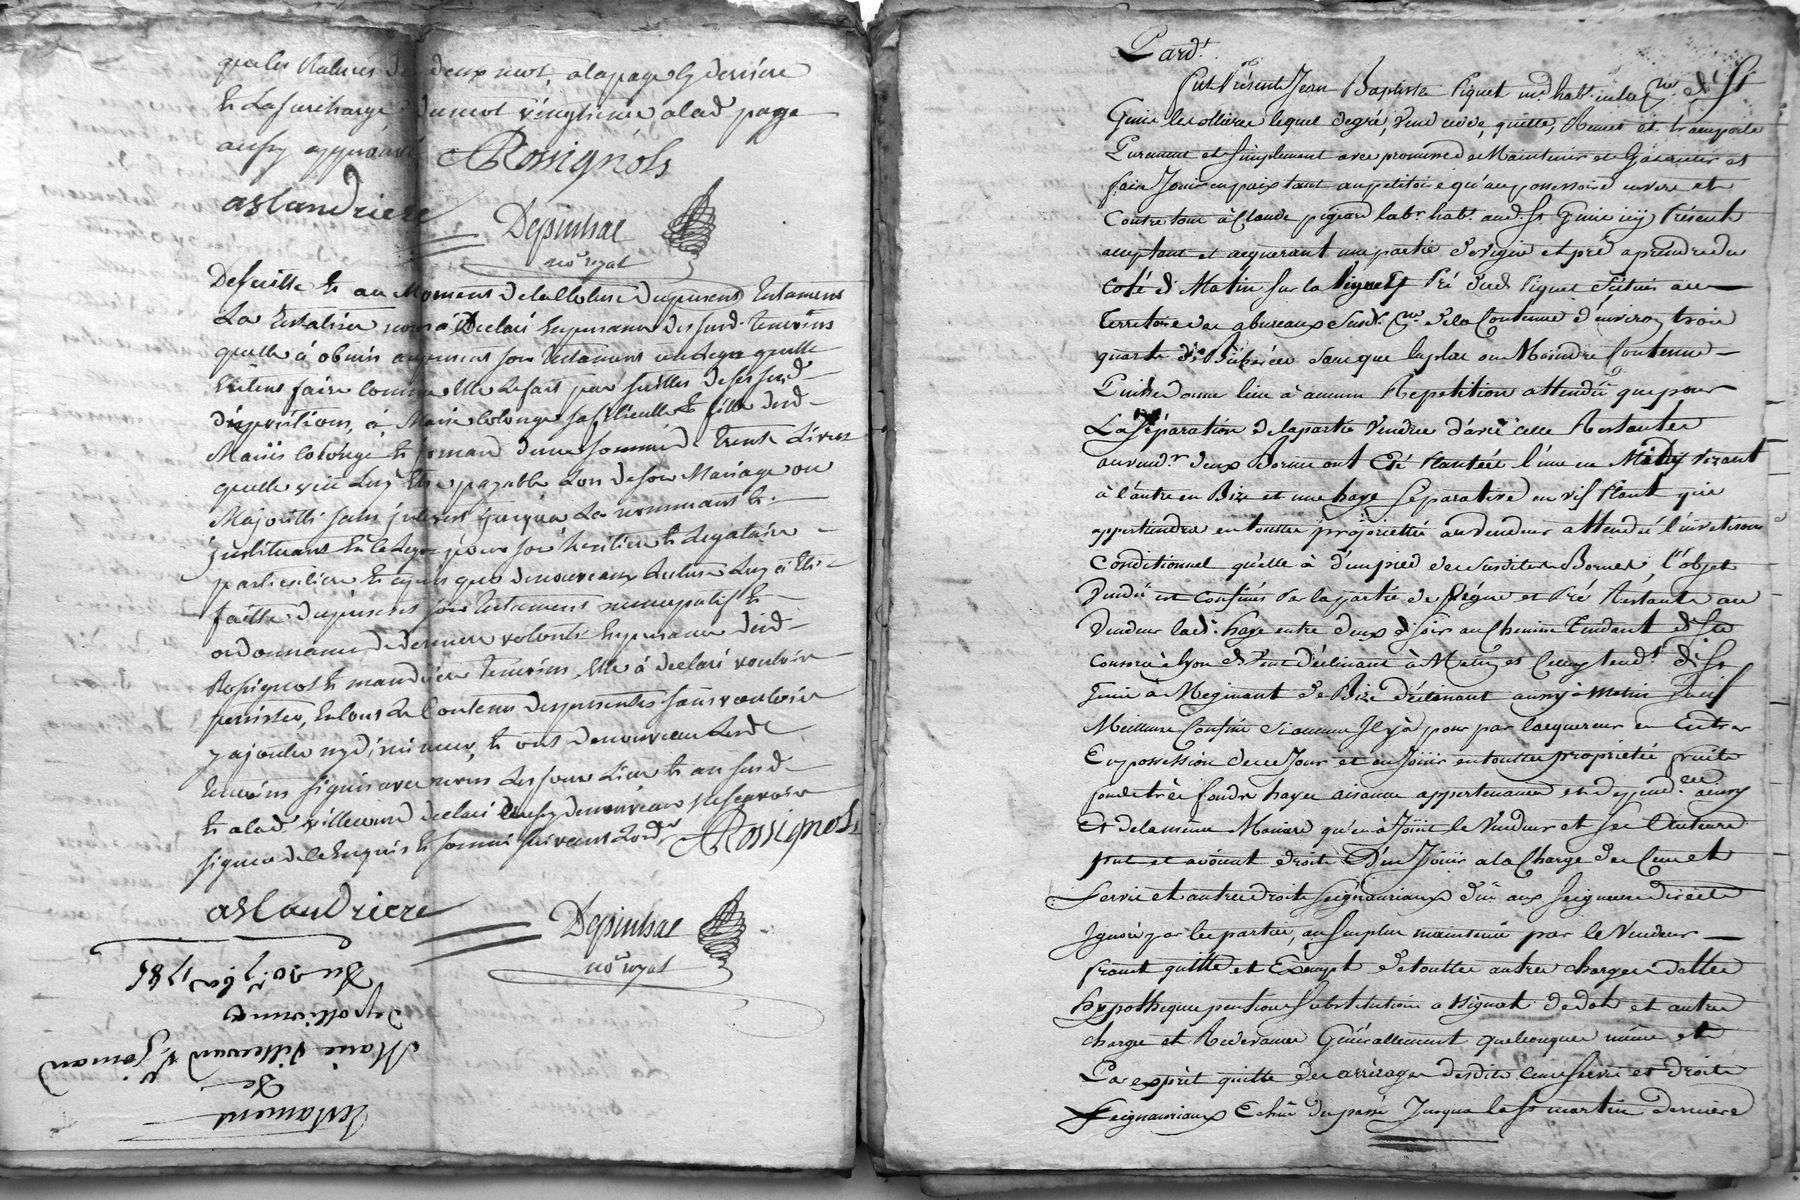 que les ratures de deux mot, a la page derriere
et La surcharge du mot a lad page
aussy approuvé ARossignols
aslandriere
Depinhac
no.re royal
De suitte et au Moment de la Cloture du present testament
La testatrice nous à Declaré En presence des susd. temoins
quelle à obmis au present son testament un Legs quelle
Entend faire comme Elle Le fait par suittes de ses susd.
dispositions, à Marie Colonge sa filleulle et fille dud.
Colonge et Jomard d'une somme de trente Livres
quelle veut Luy Etre payable Lors de son Mariage ou
Majorité sans interest jusqu'a La nommant et
instituant En ce Legs pour son heritiere et Legataire
particuliere Et apres que de nouveaux Lecture Luy à Eté
faitte du present son testament nuncupatif et
ordonnance de derniere volonté En presence desd.
Rossignol et temoins, Elle à declaré vouloir
persister, En tout Le Contenu des presentes sans vouloir
y ajouter ny diminuer, et ont de nouveau Lesd.
temoins signé avec nous Les jour Lieu et an susd.
et a lad. villerand declaré de nouveaux ne scavoir
signer de ce Enquis et sommé suivant Lord.ce ARossignols
aslandriere
Depinhac
no.re royal
Testament
De
Marie Villerand V.e Jomard
Du 20. 7.bre 178
Pard.t
Fut Présent Jean Baptiste Piquet m.d hab.t en la p.sse de S.t
Genis les ollieres lequel de gré, vend cede, quitte, Remet et transporte
Purement et Simplement avec promesse de Maintenir et Garantir et
faire Jouir en paix tant au petitoire qu'au possessoire envers et
Contre tous à Claude pigeard lab.r hab.t aud. S.t Genis icy Présent
acceptant et acquerant une partie de vigne et pré a prendre du
Coté de Matin Sur la Vigne et Pré dud. Piquet Situés au
Territoire des abureaux Susd. p.sse de la Contenue d'environ trois
quarts de Bicherée Sans que la plus ou Moindre Contenue
Puisse donner lieu à aucune Repetition attendu que pour
La Séparation de la partie Vendue d'avec celle Restante
au vend.r deux Bornes ont Eté Plantées l'une en Midy visant
à l'autre en Bize et une haye Séparative en vif Plant qui
appartiendra en toutte proprieté au vendeur attendu l'
Conditionnel qu'elle à d'un pied des Susdites Bornes, l'objet
Vendu est Confiné Par la partie de Vigne et Pré Restante au
Vendeur lad. haye entre deux de Soir au Chemin Tendant de S.te
Consorce à Lyon de Vent déclinant à Matin et Celuy tend.t de S.t
Genis à Meginant de Bize déclinant aussy à Matin Sauf
Meilleurs Confins Si aucuns Il y à pour par lacquereur en Entrer
En possession de ce Jour et en Jouir en toutte proprieté fruits
fonds très fonds hayes aisances appartenances et depend.ces ainsy
Et de la même Maniere qu'en à Joüit le Vendeur et Ses Auteurs
put et avoient droit D'en Joüir a la Charge des Cens et
Servis et autres droits Seigneuriaux dûs aux Seigneurs directs
Ignorés par les parties, au Surplus maintenüe par le Vendeur
franche quitte et Exempte de touttes autres charges dettes
hypotheques pensions Substitution assignat de dot et autres
charges et Redevances Générallement quelconques même et
Par exprès quitte des arrerages desdits cens servis et droits
Seigneuriaux Echus du passé Jusqu'a la S.t martin derniere